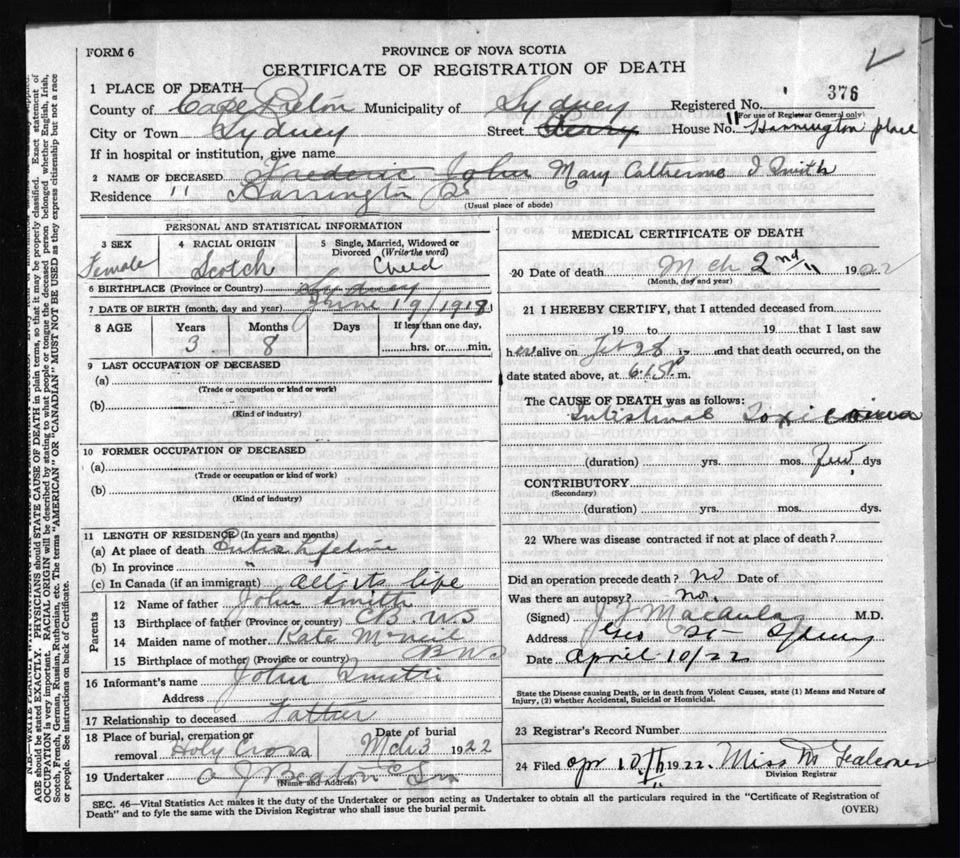 FORM 6
PROVINCE OF NOVA SCOTIA
CERTIFICATE OF REGISTRATION OF DEATH
1 PLACE OF DEATH—
County of Cape Breton Municipality of Sydney Registered No. 376
(For use of Registrar General only)
City or Town Sydney Street Ferry House No. 11 Harrington place
If in hospital or institution, give name
2 NAME OF DECEASED Frederic John Mary Catherine I Smith
Residence 11 Harrington Pl
(Usual place of abode)
PERSONAL AND STATISTICAL INFORMATION
3 SEX Female
4 RACIAL ORIGIN Scotch
5 Single, Married, Widowed or Divorced (Write the word) Child
6 BIRTHPLACE (Province or Country) Sydney
7 DATE OF BIRTH (month, day and year) June 19/1918
8 AGE Years 3 Months 8 Days If less than one day, hrs. or min.
9 LAST OCCUPATION OF DECEASED
(a)
(Trade or occupation or kind of work)
(b)
(Kind of industry)
10 FORMER OCCUPATION OF DECEASED
(a)
(Trade or occupation or kind of work)
(b)
(Kind of industry)
11 LENGTH OF RESIDENCE (In years and months)
(a) At place of death Entire lifetime
(b) In province "
(c) In Canada (if an immigrant) all its life
Parents
12 Name of father John Smith
13 Birthplace of father (Province or country) CB. NS
14 Maiden name of mother Kate McNeil
15 Birthplace of mother (Province or country)
16 Informant's name John Smith
Address
17 Relationship to deceased Father
18 Place of burial, cremation or removal Holy Cross Date of burial Mch 3 1922
19 Undertaker A J Beaton & Son
(Name and Address)
MEDICAL CERTIFICATE OF DEATH
20 Date of death Mch 2nd 1922
(Month, day and year)
21 I HEREBY CERTIFY, that I attended deceased from
19 to 19 that I last saw
her alive on Feb 28 19 and that death occurred, on the
date stated above, at 6.15P m.
The CAUSE OF DEATH was as follows:
Intestinal Toxicaemia
(duration) yrs. mos. Few dys
CONTRIBUTORY
(Secondary)
(duration) yrs. mos. dys.
22 Where was disease contracted if not at place of death?
Did an operation precede death? no Date of
Was there an autopsy? no.
(Signed) J J Macaulay M.D.
Address Geo St Sydney
Date April 10/22
State the Disease causing Death, or in death from Violent Causes, state (1) Means and Nature of
Injury, (2) whether Accidental, Suicidal or Homicidal.
23 Registrar's Record Number
24 Filed Apr 10th 1922. Miss M Falconer
Division Registrar
SEC. 46—Vital Statistics Act makes it the duty of the Undertaker or person acting as Undertaker to obtain all the particulars required in the "Certificate of Registration of
Death" and to fyle the same with the Division Registrar who shall issue the burial permit.
(OVER)
AGE should be stated EXACTLY. PHYSICIANS should STATE CAUSE OF DEATH in plain terms, so that it may be properly classified. Exact statement of
OCCUPATION is very important. RACIAL ORIGIN will be described by stating to what people or tongue the deceased person belonged whether English, Irish,
Scotch, French, German, Russian, Ruthenian, etc. The terms "AMERICAN" OR "CANADIAN" MUST NOT BE USED as they express citizenship but not a race
or people. See instructions on back of Certificate.